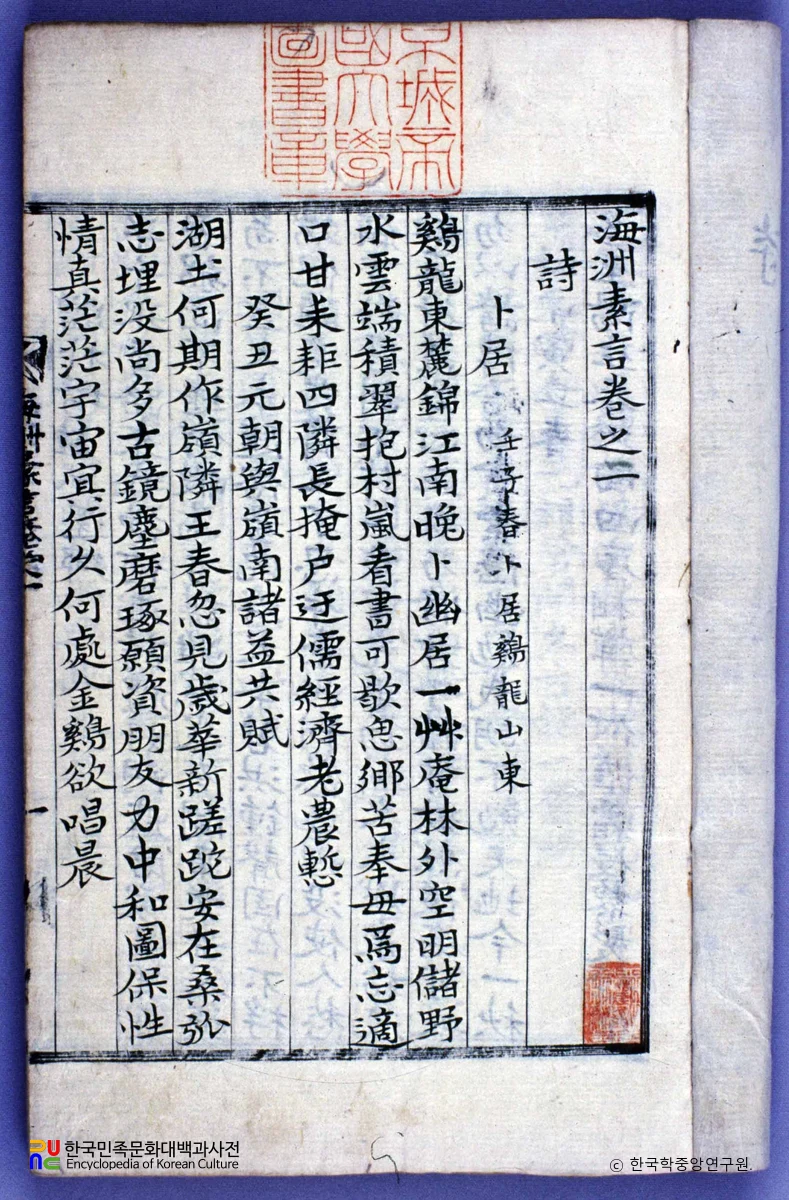 海洲素言卷之二
詩
卜居 壬子春卜居鷄龍山東
鷄龍東麓錦江南晚卜幽居一艸庵林外空明儲野
水雲端積翠抱村嵐看書可歇思鄉苦奉毋爲忘適
口甘耒耟四隣長掩户迂儒經濟老農慙
癸丑元朝與嶺南諸益共賦
湖土何期作嶺隣王春忽見歲華新蹉跎安在桑弧
志埋没尚多古鏡塵磨琢願資朋友力中和圖保性
情真茫茫宇宙冥行久何處金鷄欲唱晨
京城帝
國大學
圖書章
한국민족문화대백과사전
Encyclopedia of Korean Culture
© 한국학중앙연구원